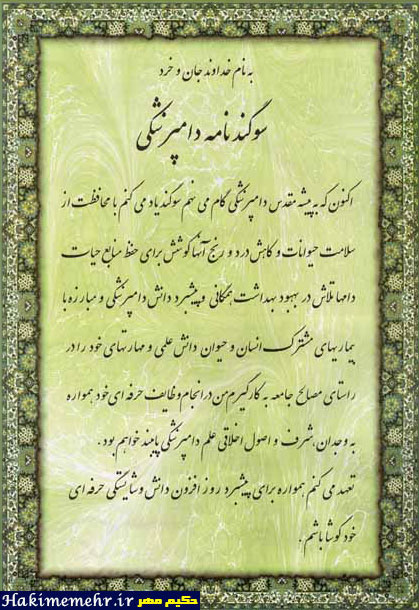 به نام خداوند جان و خرد
سوگند نامه دامپزشکی
اکنون که به پیشه مقدس دامپزشکی گام می نهم سوگند یاد می کنم با محافظت از
سلامت حیوانات و کاهش درد و رنج آنها کوشش برای حفظ منابع حیات
دامها تلاش در بهبود بهداشت همگانی و پیشبرد دانش دامپزشکی و مبارزه با
بیماریهای مشترک انسان و حیوان دانش علمی و مهارتهای خود را در
راستای مصالح جامعه به کار گیرم من در انجام وظایف حرفه ای خود همواره
به وجدان، شرف و اصول اخلاقی علم دامپزشکی پابند خواهم بود.
تعهد می کنم همواره برای پیشبرد روز افزون دانش و شایستگی حرفه ای
خود کوشا باشم.
حکیم مهر Hakimemehr.ir